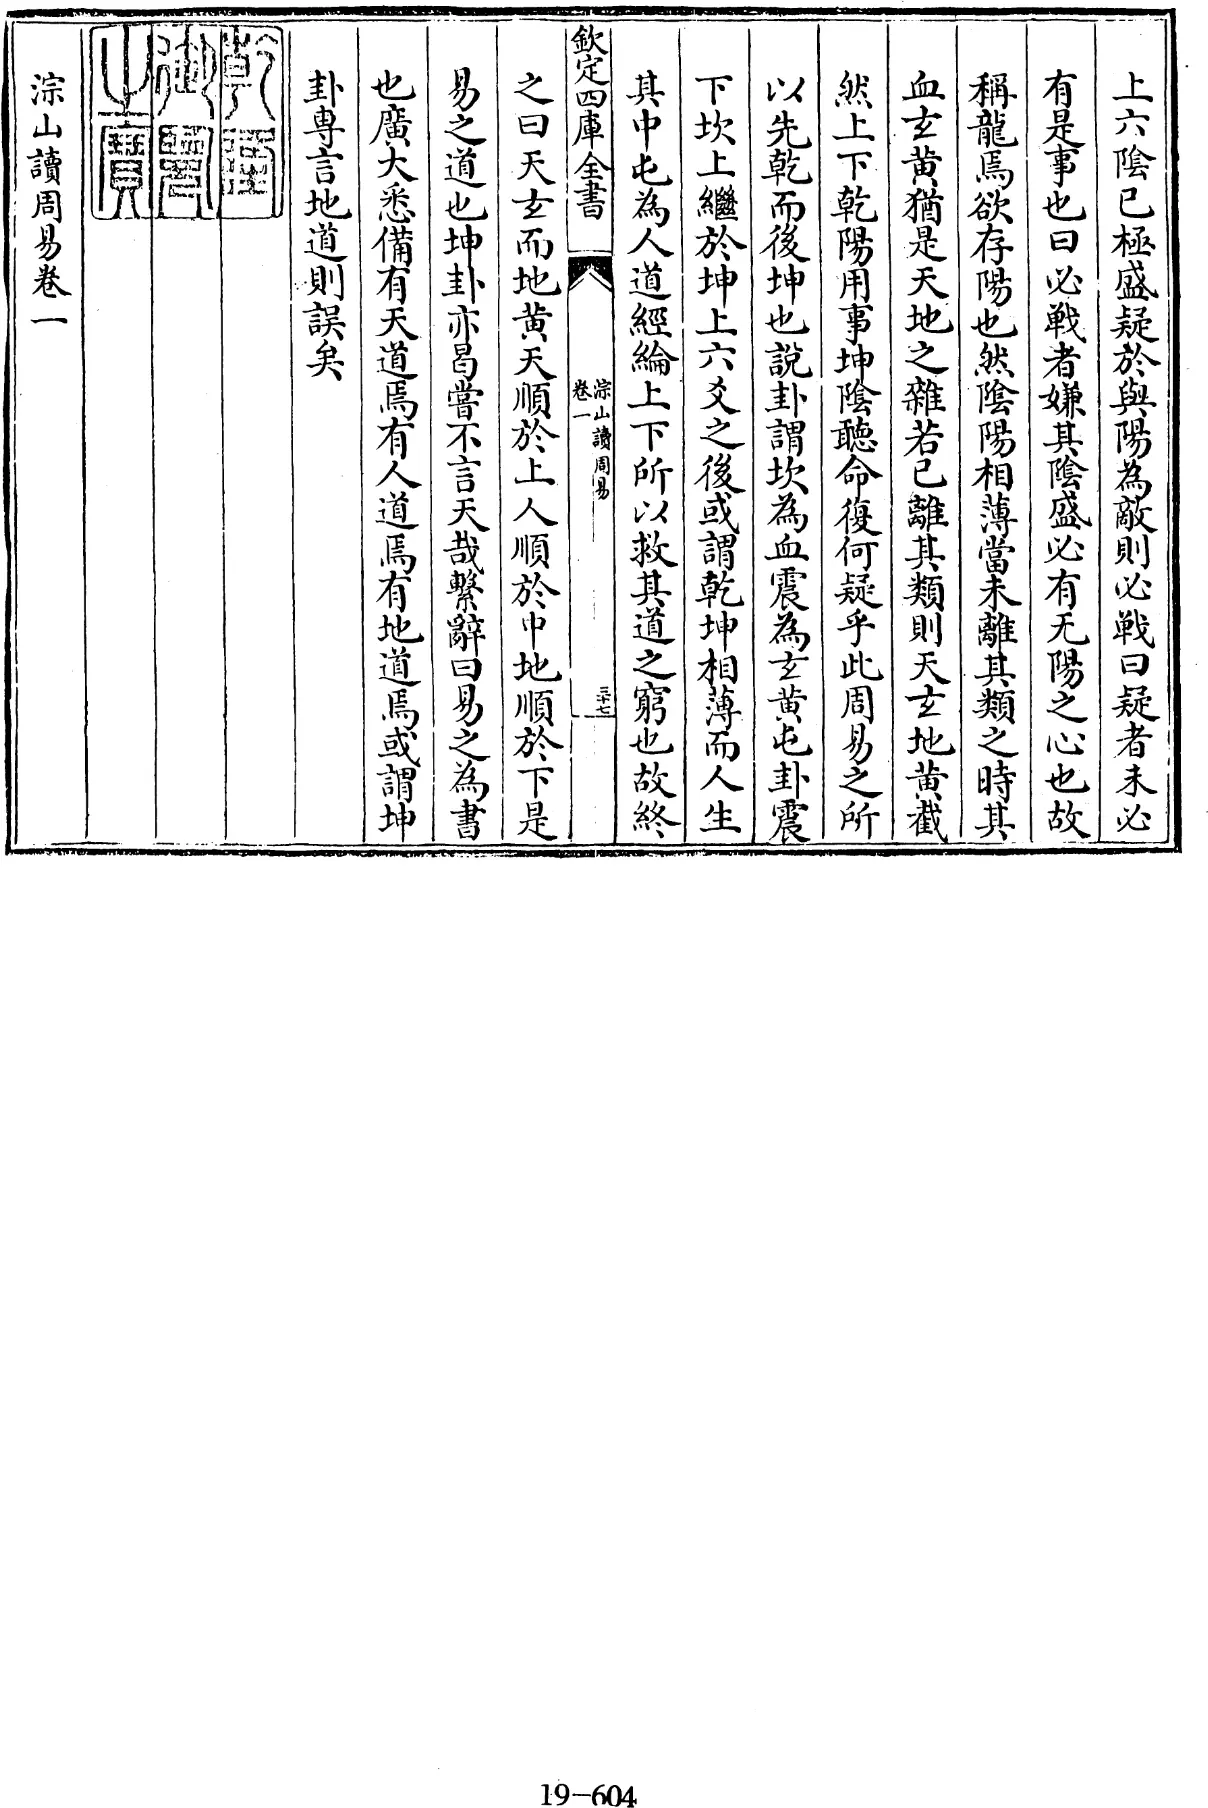 上六陰已極盛疑於與陽為敵則必戰曰疑者未必
有是事也曰必戰者嫌其陰盛必有无陽之心也故
稱龍焉欲存陽也然陰陽相薄當未離其類之時其
血玄黄猶是天地之雜若已離其類則天玄地黄截
然上下乾陽用事坤陰聽命復何疑乎此周易之所
以先乾而後坤也說卦謂坎為血震為玄黄屯卦震
下坎上繼於坤上六爻之後或謂乾坤相薄而人生
其中屯為人道經綸上下所以救其道之窮也故終
欽定四庫全書
淙山讀周易
卷一
三十七
之曰天玄而地黄天順於上人順於中地順於下是
易之道也坤卦亦曷嘗不言天哉繫辭曰易之為書
也廣大悉備有天道焉有人道焉有地道焉或謂坤
卦專言地道則誤矣
乾隆
御覽
之寶
淙山讀周易卷一
19-604